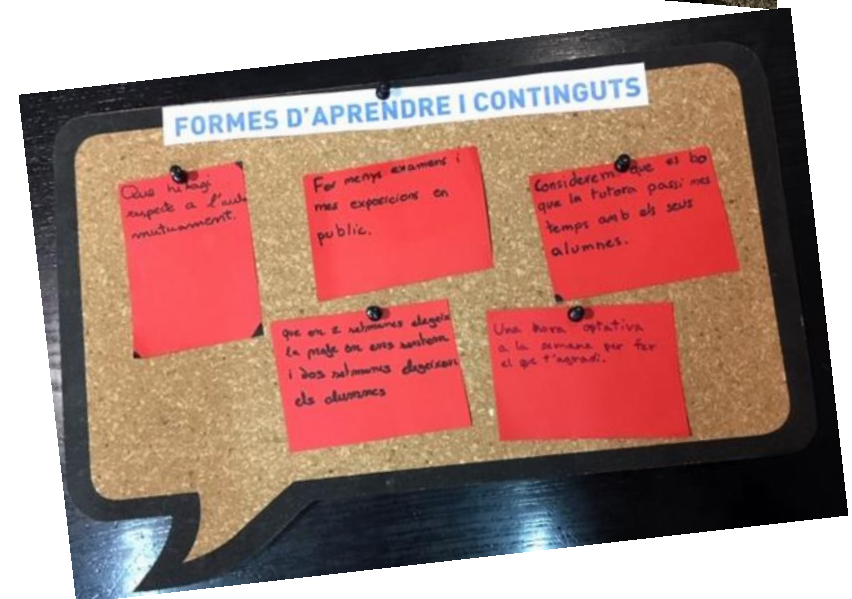 FORMES D'APRENDRE I CONTINGUTS
Que hi hagi
respecte a l'aula
mutuament.
Fer menys examens i
mes exposicions en
public.
Considerem que es bo
que la tutora passi mes
temps amb els seus
alumnes.
que en 2 setmanes elegeix
la profe on ens sentem
i dos setmanes elegeixen
els alumnes
Una hora optativa
a la semana per fer
el que t'agradi.